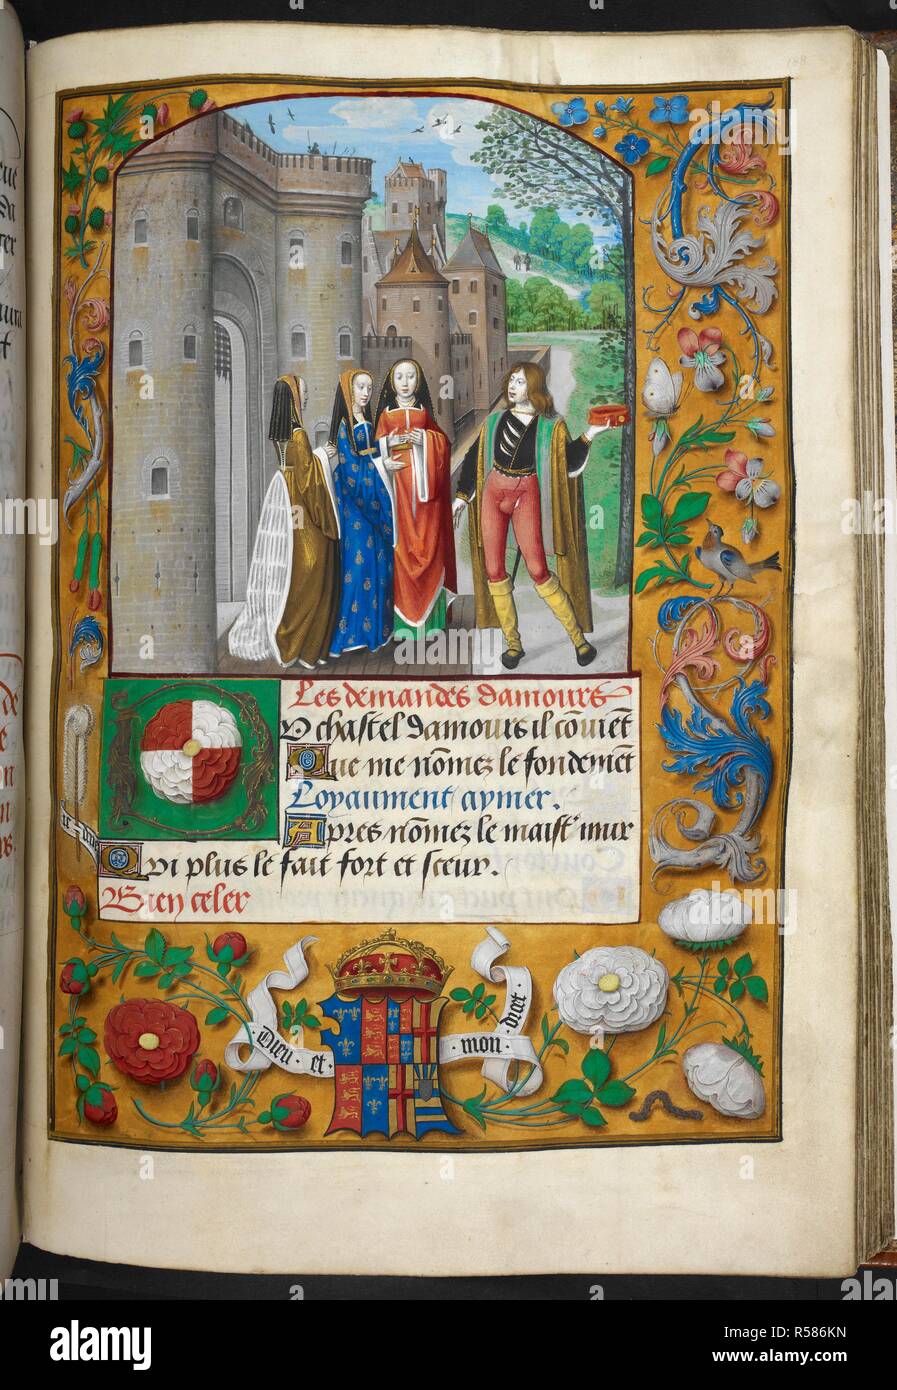 188
Les demandes damours
U chastel damours il cōuiēt
Que me nōmez le fondemēt
Loyaument aymer.
Apres nōmez le maistʳ mur
Qui plus le fait fort et seeur.
Bien celer
Dieu et mon droet
a alamy stock photo
alamy
Image ID: R586KN
www.alamy.com